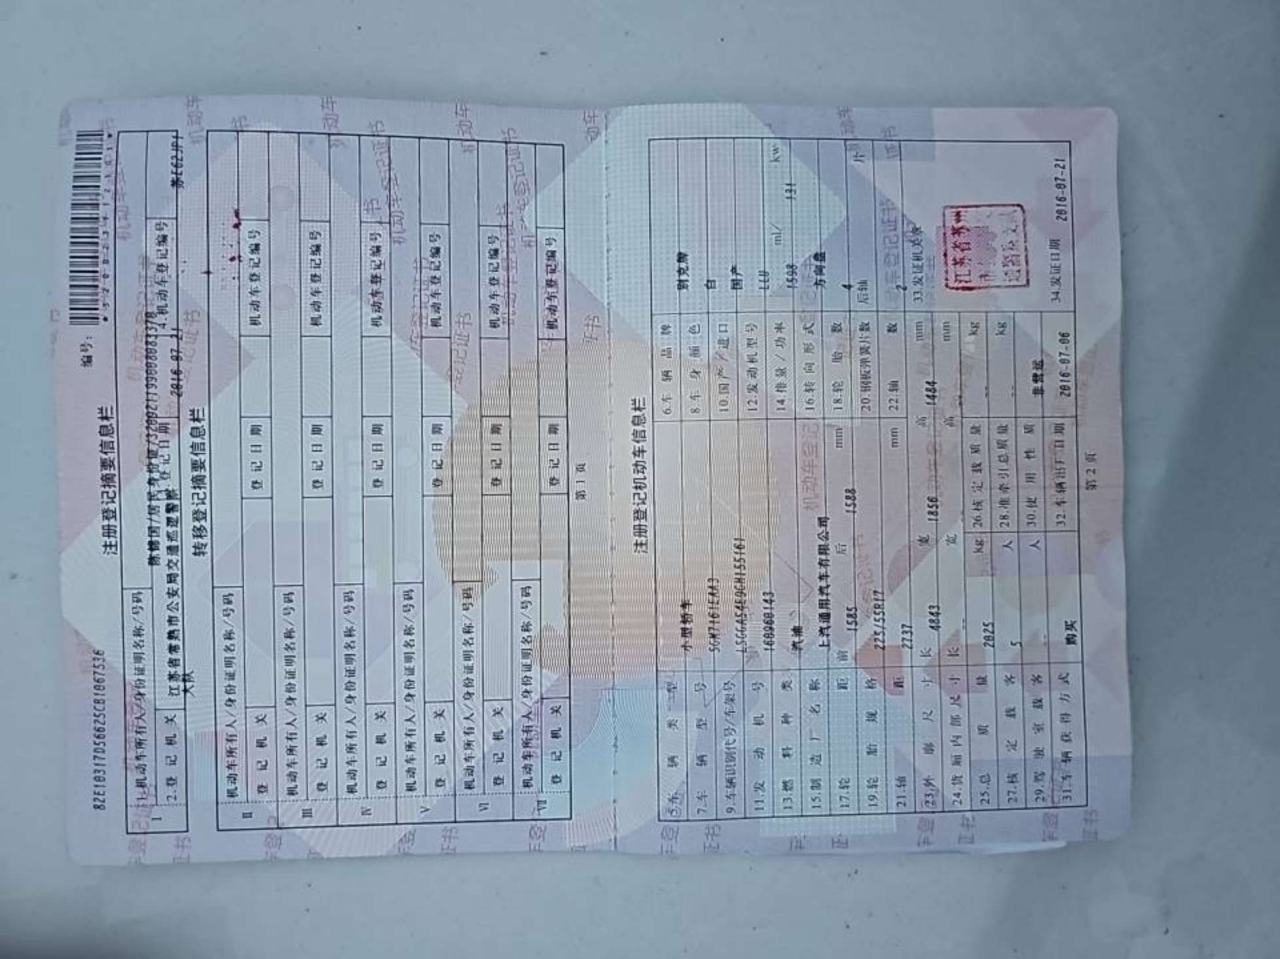 注册登记摘要信息栏
编号:
1.机动车所有人/身份证明名称/号码
2.登记机关
江苏省常熟市公安局交通巡逻警察大队
登记日期
2016-07-21
4.机动车登记编号
转移登记摘要信息栏
Ⅱ
机动车所有人/身份证明名称/号码
登记机关
登记日期
机动车登记编号
Ⅲ
机动车所有人/身份证明名称/号码
登记机关
登记日期
机动车登记编号
Ⅳ
机动车所有人/身份证明名称/号码
登记机关
登记日期
机动车登记编号
Ⅴ
机动车所有人/身份证明名称/号码
登记机关
登记日期
机动车登记编号
Ⅵ
机动车所有人/身份证明名称/号码
登记机关
登记日期
机动车登记编号
Ⅶ
机动车所有人/身份证明名称/号码
登记机关
登记日期
机动车登记编号
第1页
注册登记机动车信息栏
5.车辆类型 小型轿车 6.车辆品牌 别克牌
7.车辆型号 8.车身颜色 白
9.车辆识别代号/车架号 10.国产/进口 国产
11.发动机号 160960143 12.发动机型号
13.燃料种类 汽油 14.排量/功率 1598 ml/ 131 kw
15.制造厂名称 上汽通用汽车有限公司 16.转向形式 方向盘
17.轮距 前 1585 后 1588 mm 18.轮胎数 4
19.轮胎规格 225/55R17 20.钢板弹簧片数 后轴 片
21.轴距 2737 mm 22.轴数 2
23.外廓尺寸 长 4843 宽 1856 高 1484 mm 33.发证机关章
24.货厢内部尺寸 长 宽 高 mm
25.总质量 2025 kg 26.核定载质量 kg
27.核定载客 5 人 28.准牵引总质量 kg
29.驾驶室载客 人 30.使用性质 非营运
31.车辆获得方式 购买 32.车辆出厂日期 2016-07-06 34.发证日期 2016-07-21
第2页